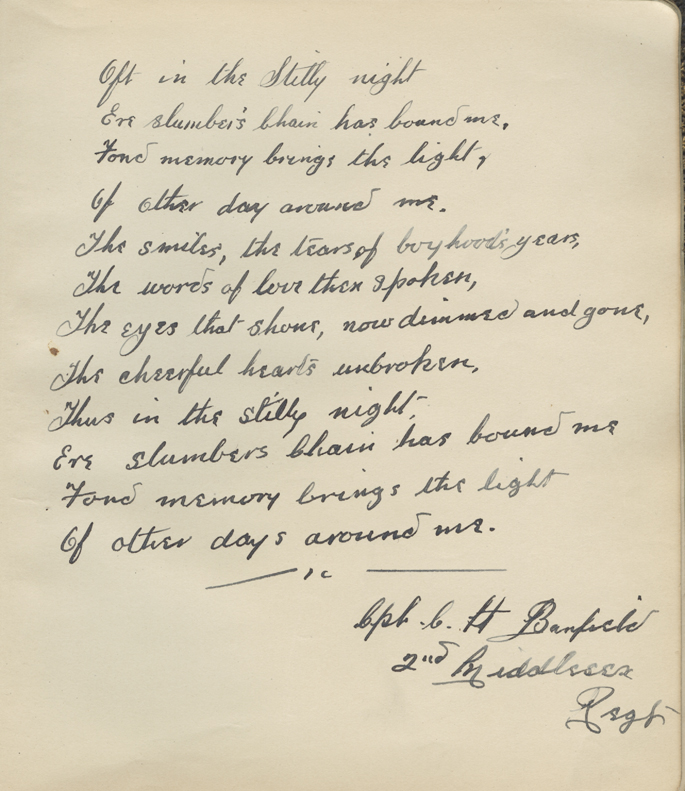 Oft in the Stilly night
Ere slumber's Chain has bound me.
Fond memory brings the light,
Of other day around me.
The smiles, the tears of boyhood's years,
The words of love then spoken,
The eyes that shone, now dimmed and gone,
The cheerful hearts unbroken,
Thus in the stilly night,
Ere slumbers Chain has bound me
Fond memory brings the light
Of other days around me.
Cpl. C. H Banfield
2nd Middlesex
Regt